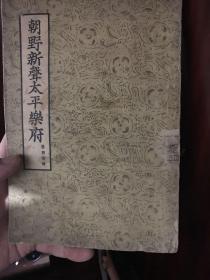 朝野新聲太平樂府